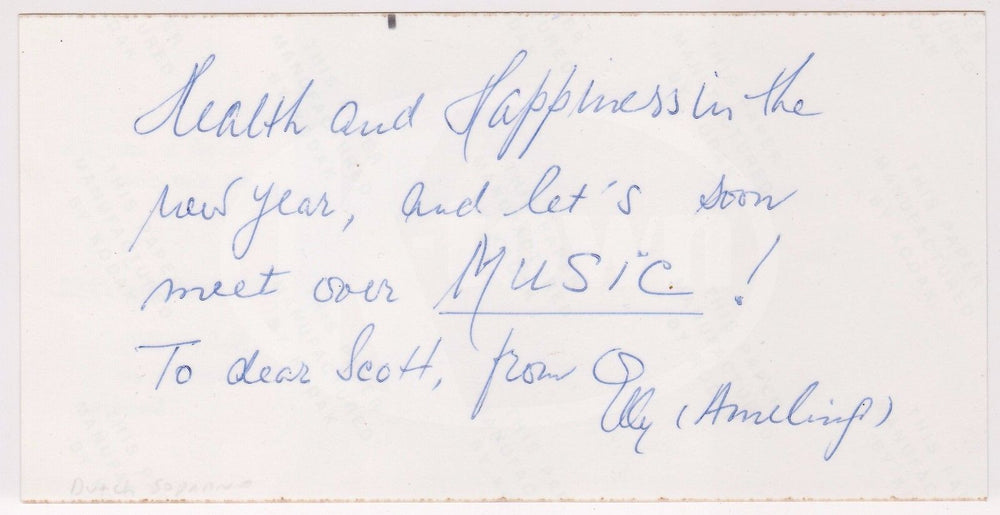 Health and Happiness in the
new year, and let's soon
meet over MUSIC !
To dear Scott, from Elly (Ameling)
Dutch Soprano